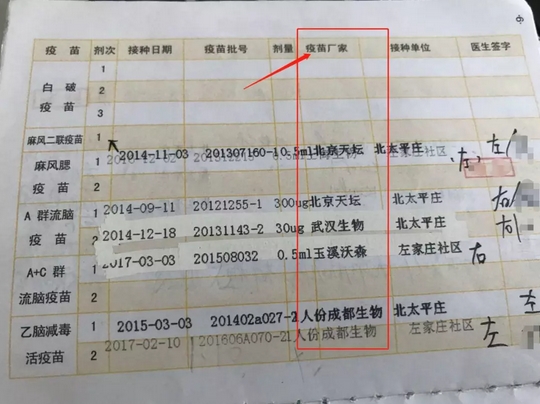 疫苗 剂次 接种日期 疫苗批号 剂量 疫苗厂家 接种单位 医生签字
白破疫苗 1
2
3
麻风二联疫苗 1 2014-11-03 201307160-1 0.5ml 北京天坛 北太平庄 左
麻风腮疫苗 1 左家庄社区 右
2
A群流脑疫苗 1 2014-09-11 20121255-1 300ug 北京天坛 北太平庄 右
2 2014-12-18 20131143-2 30ug 武汉生物 北太平庄 右
A+C群流脑疫苗 1 2017-03-03 201508032 0.5ml 玉溪沃森 左家庄社区 右
2
乙脑减毒活疫苗 1 2015-03-03 201402a027-2 1人份 成都生物 北太平庄 左
2 2017-02-10 201606A070-2 1人份 成都生物 左家庄社区 左